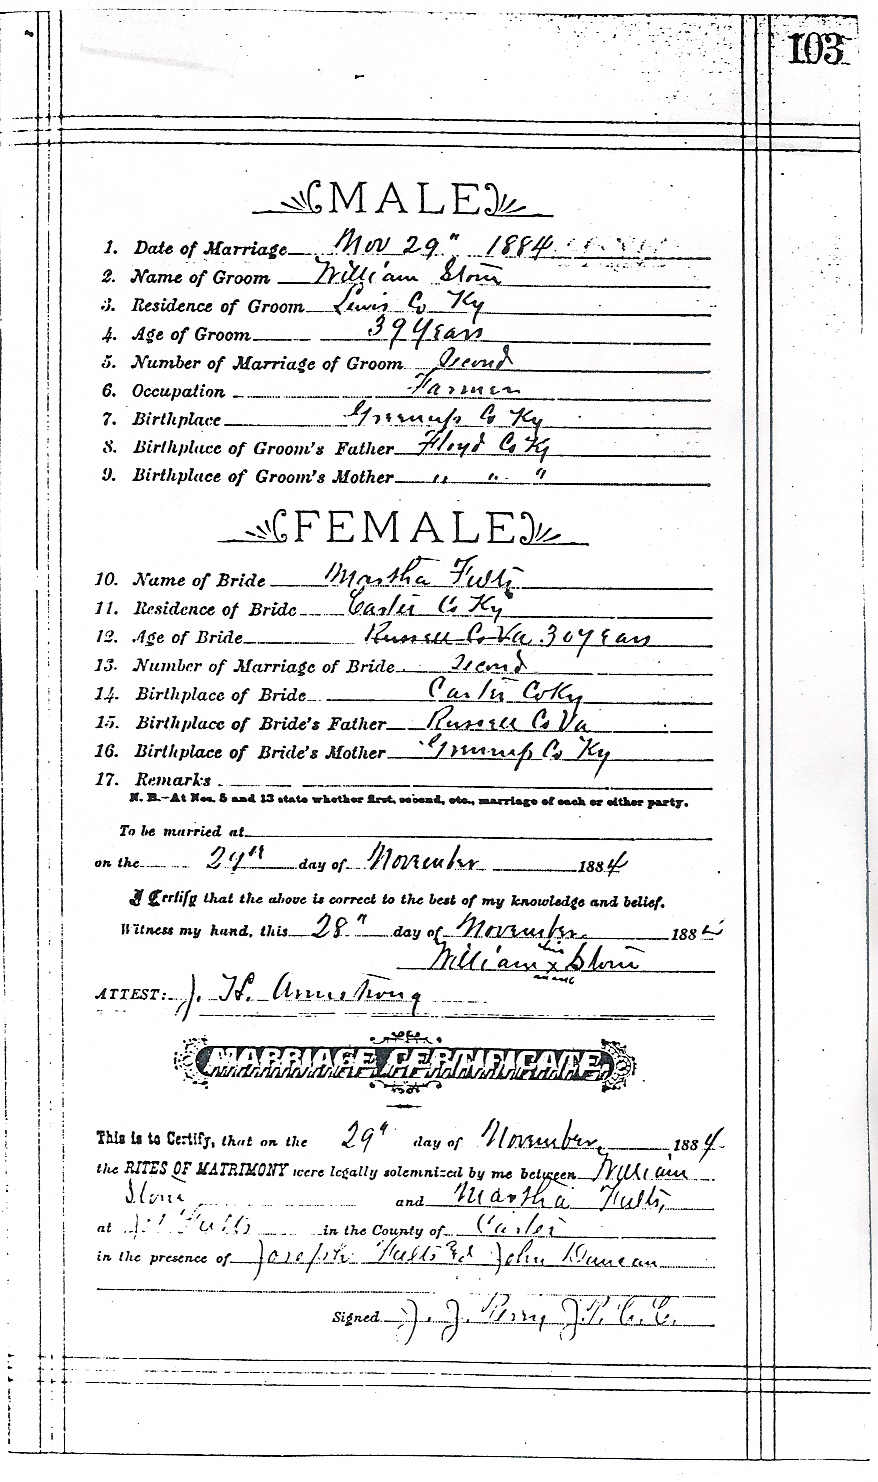 103
MALE
1. Date of Marriage Nov 29" 1884
2. Name of Groom William Stone
3. Residence of Groom Lewis Co Ky
4. Age of Groom 39 Years
5. Number of Marriage of Groom Second
6. Occupation Farmer
7. Birthplace Greenup Co Ky
8. Birthplace of Groom's Father Floyd Co Ky
9. Birthplace of Groom's Mother " " "
FEMALE
10. Name of Bride Martha Fults
11. Residence of Bride Carter Co Ky
12. Age of Bride Russell Co Va 30 years
13. Number of Marriage of Bride Second
14. Birthplace of Bride Carter Co Ky
15. Birthplace of Bride's Father Russell Co Va
16. Birthplace of Bride's Mother Greenup Co Ky
17. Remarks
N. B.—At Nos. 5 and 13 state whether first, second, etc., marriage of each or either party.
To be married at
on the 29th day of November 1884
I Certify that the above is correct to the best of my knowledge and belief.
Witness my hand, this 28" day of November 188
his
William x Stone
mark
ATTEST: J. H. Armstrong
MARRIAGE CERTIFICATE
This is to Certify, that on the 29" day of November 1884
the RITES OF MATRIMONY were legally solemnized by me between William
Stone and Martha Fults,
at Fults in the County of Carter
in the presence of Joseph Fults Ed John Duncan
Signed J. J. Perry J.P.C.C.